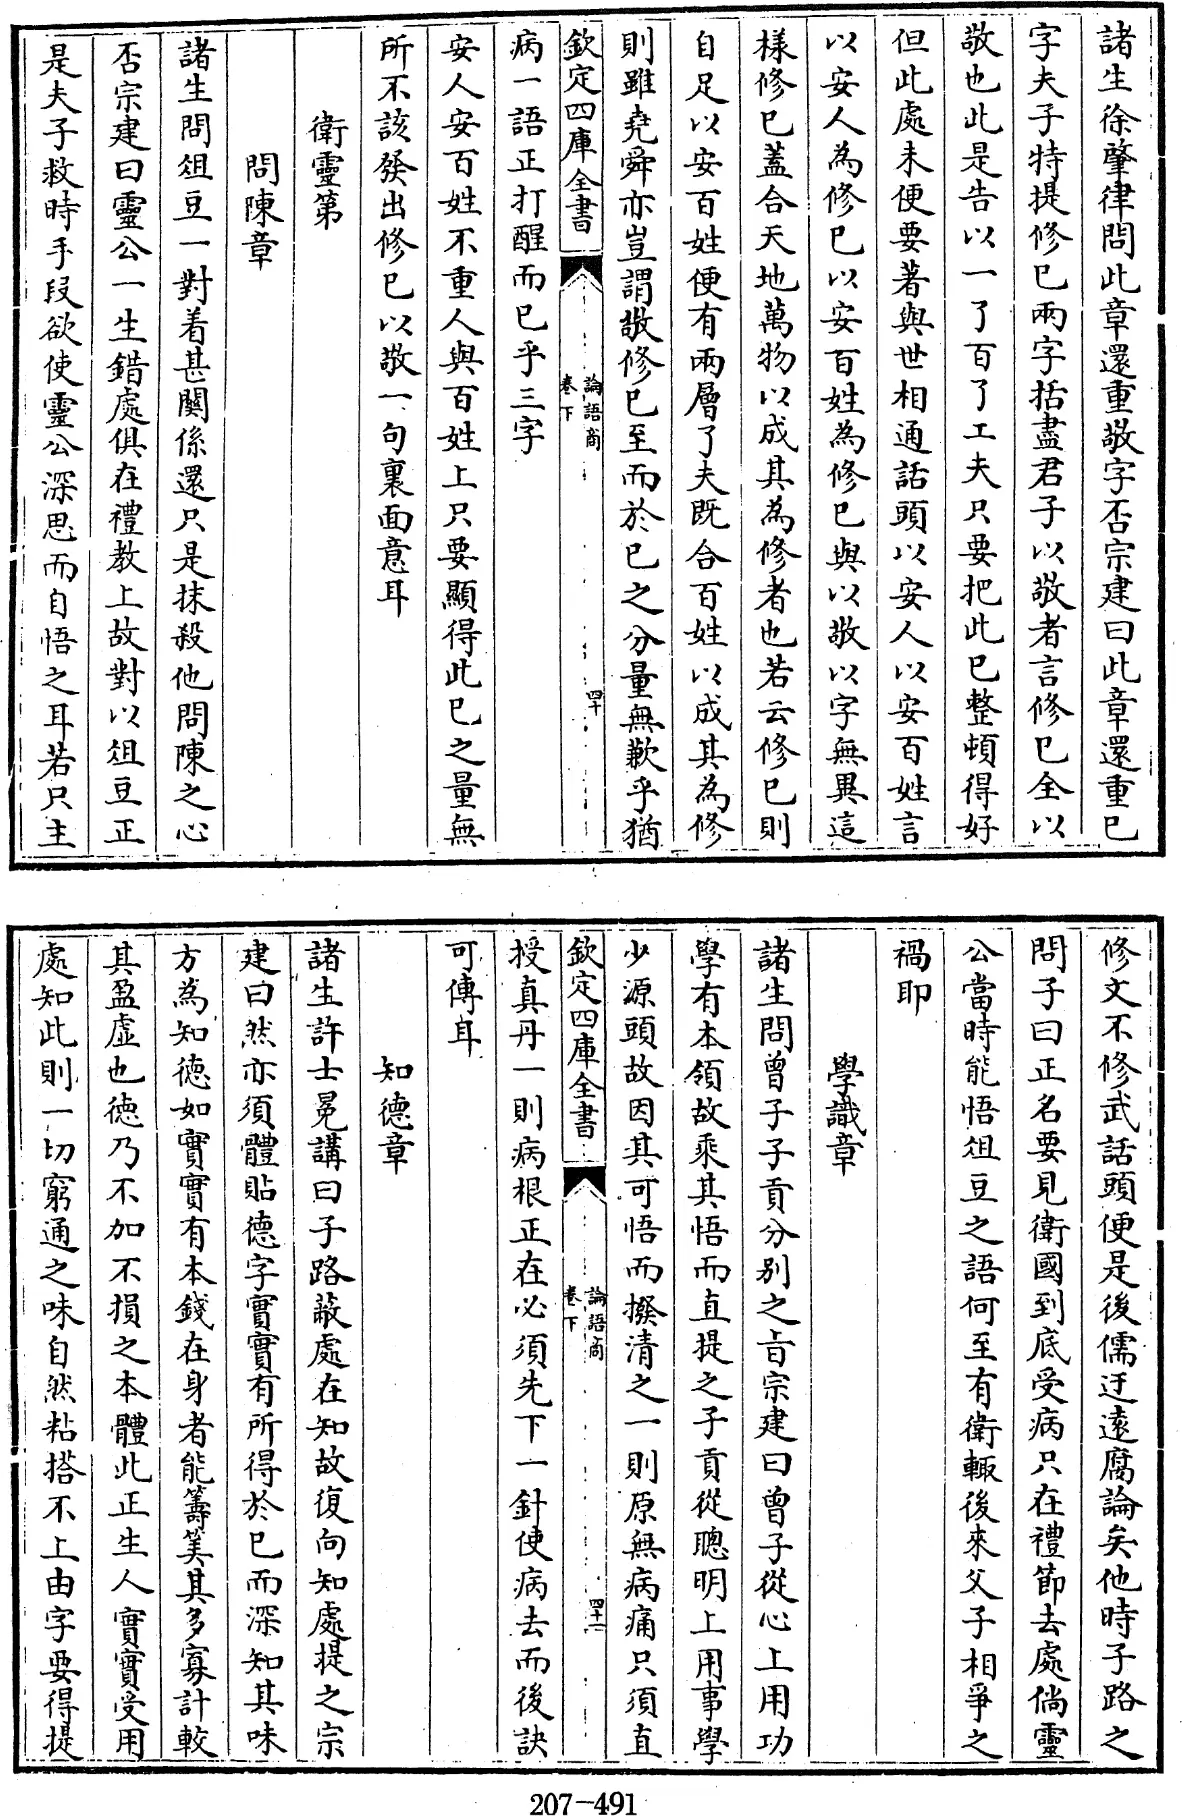 諸生徐肇律問此章還重敬字否宗建曰此章還重已
字夫子特提修已兩字括盡君子以敬者言修已全以
敬也此是告以一了百了工夫只要把此已整頓得好
但此處未便要著與世相通話頭以安人以安百姓言
以安人為修已以安百姓為修已與以敬以字無異這
樣修已蓋合天地萬物以成其為修者也若云修已則
自足以安百姓便有兩層了夫既合百姓以成其為修
則雖堯舜亦豈謂敬修已至而於已之分量無歉乎猶
欽定四庫全書
論語商
卷下
四十
病一語正打醒而已乎三字
安人安百姓不重人與百姓上只要顯得此已之量無
所不該發出修已以敬一句裏面意耳
衛靈第
問陳章
諸生問俎豆一對着甚關係還只是抹殺他問陳之心
否宗建曰靈公一生錯處俱在禮教上故對以俎豆正
是夫子救時手段欲使靈公深思而自悟之耳若只主
修文不修武話頭便是後儒迂遠腐論矣他時子路之
問子曰正名要見衛國到底受病只在禮節去處倘靈
公當時能悟俎豆之語何至有衛輒後來父子相爭之
禍耶
學識章
諸生問曾子子貢分別之旨宗建曰曾子從心上用功
學有本領故乘其悟而直提之子貢從聰明上用事學
少源頭故因其可悟而撥清之一則原無病痛只須直
欽定四庫全書
論語商
卷下
四十一
授真丹一則病根正在必須先下一針使病去而後訣
可傳耳
知德章
諸生許士冕講曰子路蔽處在知故復向知處提之宗
建曰然亦須體貼德字實實有所得於已而深知其味
方為知德如實實有本錢在身者能籌筭其多寡計較
其盈虛也德乃不加不損之本體此正生人實實受用
處知此則一切窮通之味自然粘搭不上由字要得提
207-491